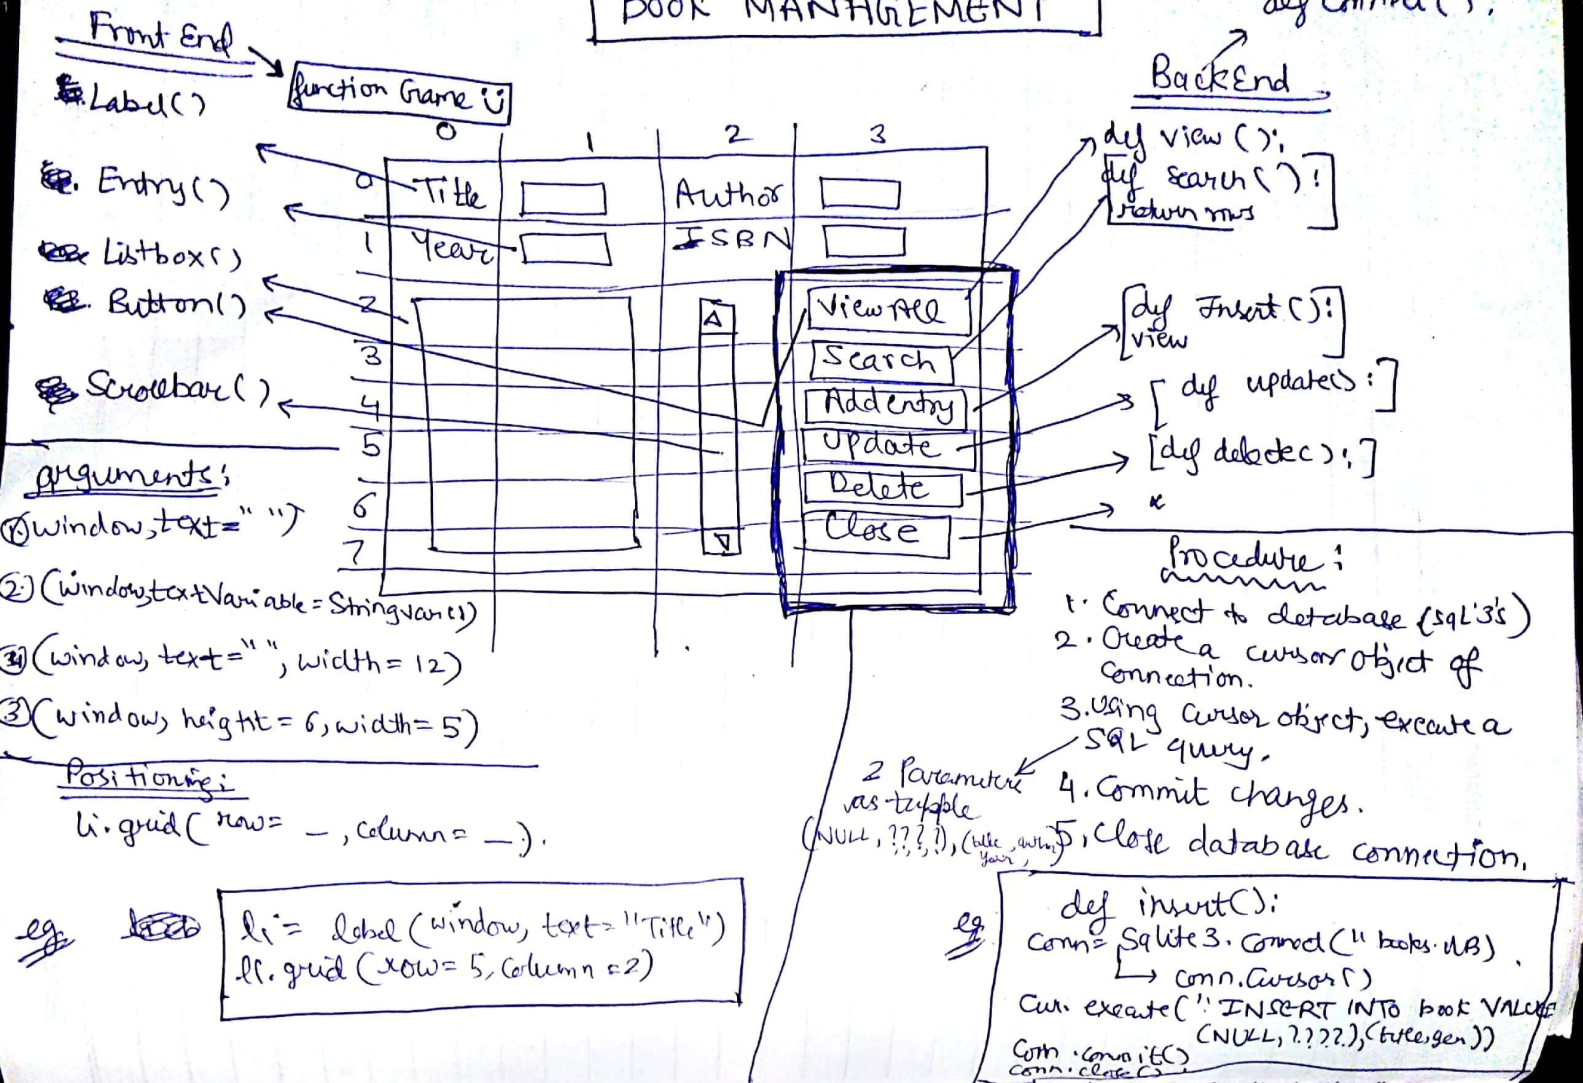 BOOK MANAGEMENT
def connect():
Front End
function Game
Label()
Entry()
Listbox()
Button()
Scrollbar()
0 1 2 3
0 Title Author
1 Year ISBN
2 View All
3 Search
4 Add entry
5 Update
Delete
6 Close
7
BackEnd
def view():
def search():
return rows
def Insert():
view
def update():
def delete():
*
arguments:
① window, text=" ")
② (window, textVariable = StringVar())
④ (window, text=" ", width = 12)
③ (window, height = 6, width = 5)
Positioning:
li.grid( row= _ , column = _ ).
eg
li = label (window, text = "Title")
li.grid (row = 5, column = 2)
Procedure:
1. Connect to detabase (sqL3's)
2. Create a cursor object of
connection.
3. Using cursor object, execute a
SQL query.
4. Commit changes.
5, Close database connection.
2 Parameters
as tupple
(NULL, ????), (title, author,
year,
eg
def insert():
conn= Sqlite3.connect(" books.db)
conn.cursor()
Cur. execute(" INSERT INTO book VALUE
(NULL, ????), (title,
conn.commit()
conn.close()